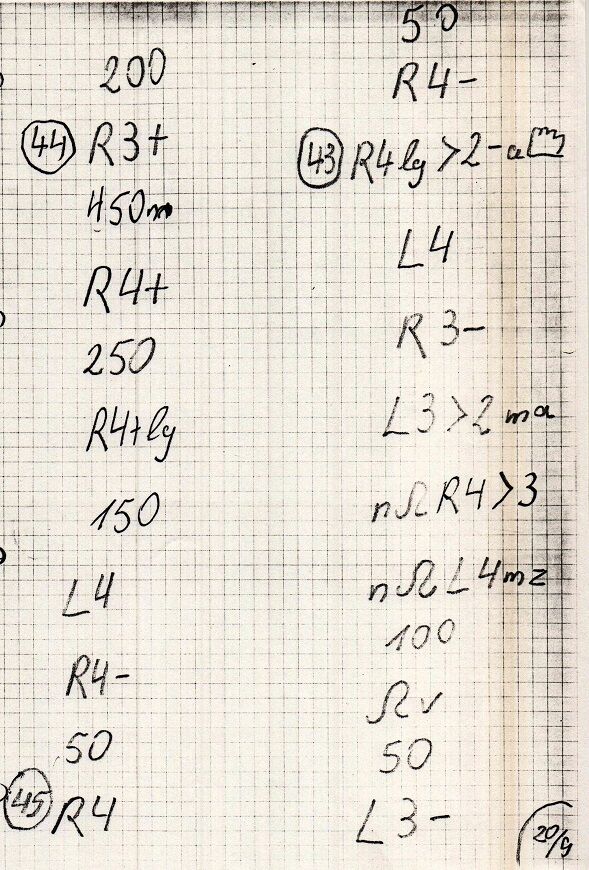 200
44 R3+
450m
R4+
250
R4+lg
150
L4
R4-
50
45 R4
50
R4-
43 R4lg>2-a
L4
R3-
L3>2 ma
nΩR4>3
nΩL4mz
100
Ωv
50
L3-
20/9